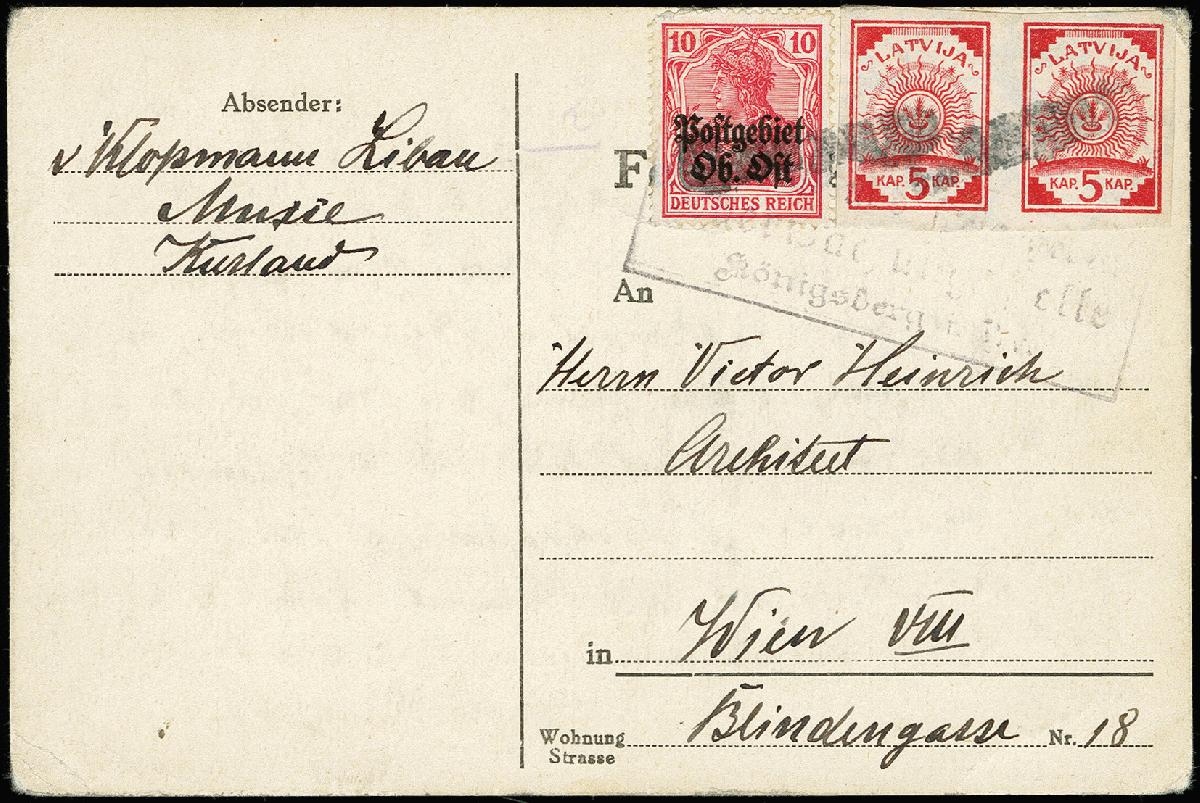 Absender:
v Klopmann Libau
Kurland
10 10
Postgebiet
Ob. Ost
DEUTSCHES REICH
LATVIJA
KAP. 5 KAP.
LATVIJA
KAP. 5 KAP.
Königsberg
An
Herrn Victor Heinrich
Architect
in Wien VIII
Wohnung
Strasse
Blindengasse Nr. 18